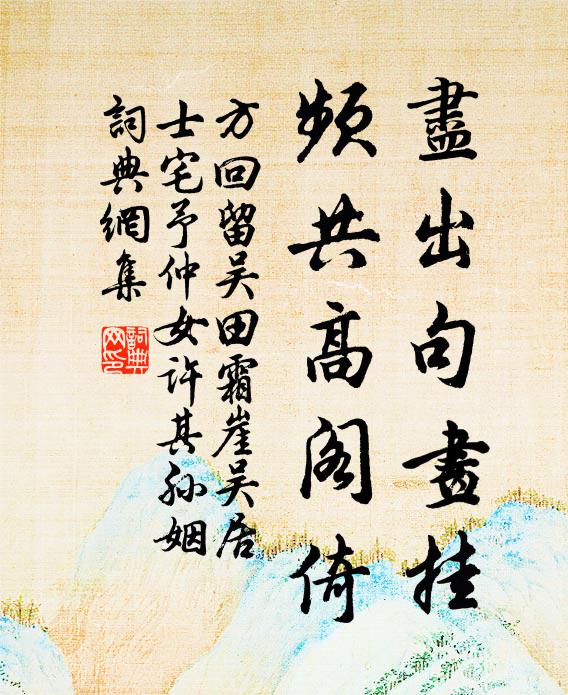 盡出句畫挂
頻共高阁倚
方回留吴田霜崖吴居
士宅予仲女许其孙姻
詞典網集
詞典
网印